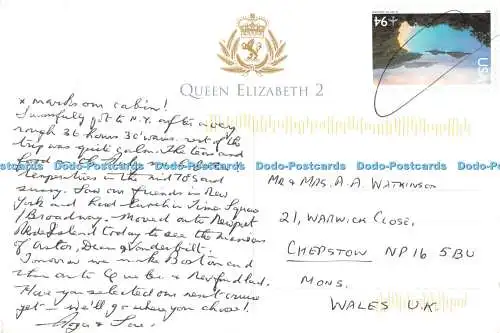 QUEEN ELIZABETH 2
USA 94
x marks our cabin!
N.Y. after a very
rough 36 hours 30' waves. rest of the
trip was quite calm. The tours and
food
Temperatures in the mid 70's and
sunny. Saw our friends in New
York and had lunch in Times Square
/Broadway. Moved on to Newport
Rhode Island today to see the mansions
of Astor, Vanderbilt.
Tomorrow we make Boston and
then on to Quebec & Newfoundland.
Have you selected our next cruise
yet – we'll go where you choose!
Love
MR & MRS. A.A. WATKINSON
21, WARWICK CLOSE,
CHEPSTOW NP16 5BU
MONS.
WALES U.K.
Dodo-Postcards Dodo-Postcards Dodo-Postcards Dodo-Postcards Dodo-Postcards